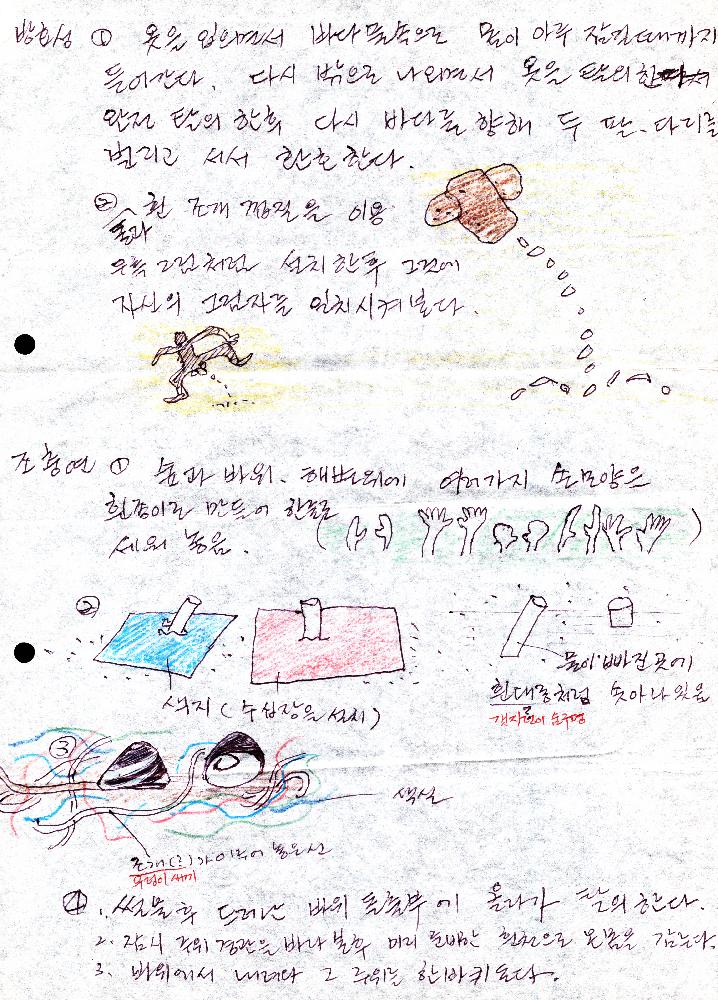 방효성 ① 옷을 입으면서 바다 물속으로 몸이 아주 잠길때까지
들어간다. 다시 밖으로 나오면서 옷을 탈의한
완전 탈의 한후 다시 바다를 향해 두 팔. 다리를
벌리고 서서 환호한다.
② 흰 조개 껍질을 이용
돌과
우측 그림처럼 설치한후 그곳에
자신의 그림자를 일치시켜본다.
조충연 ① 숲과 바위. 해변위에 여러가지 손모양은
흰종이로 만들어 한들로
세워 놓음.
②
색지 (수십장을 설치)
물이 빠진 곳에
흰대롱처럼 솟아나있음
③
색실
조개(?)가 이루어 놓은 선
④ 1. 썰물후 드러난 바위 돌출부에 올라가 탈의한다.
2. 잠시 주위 경관을 바라본후 미리 준비한 흰천으로 온몸을 감는다.
3. 바위에서 내려와 그 주위를 한바퀴돈다.